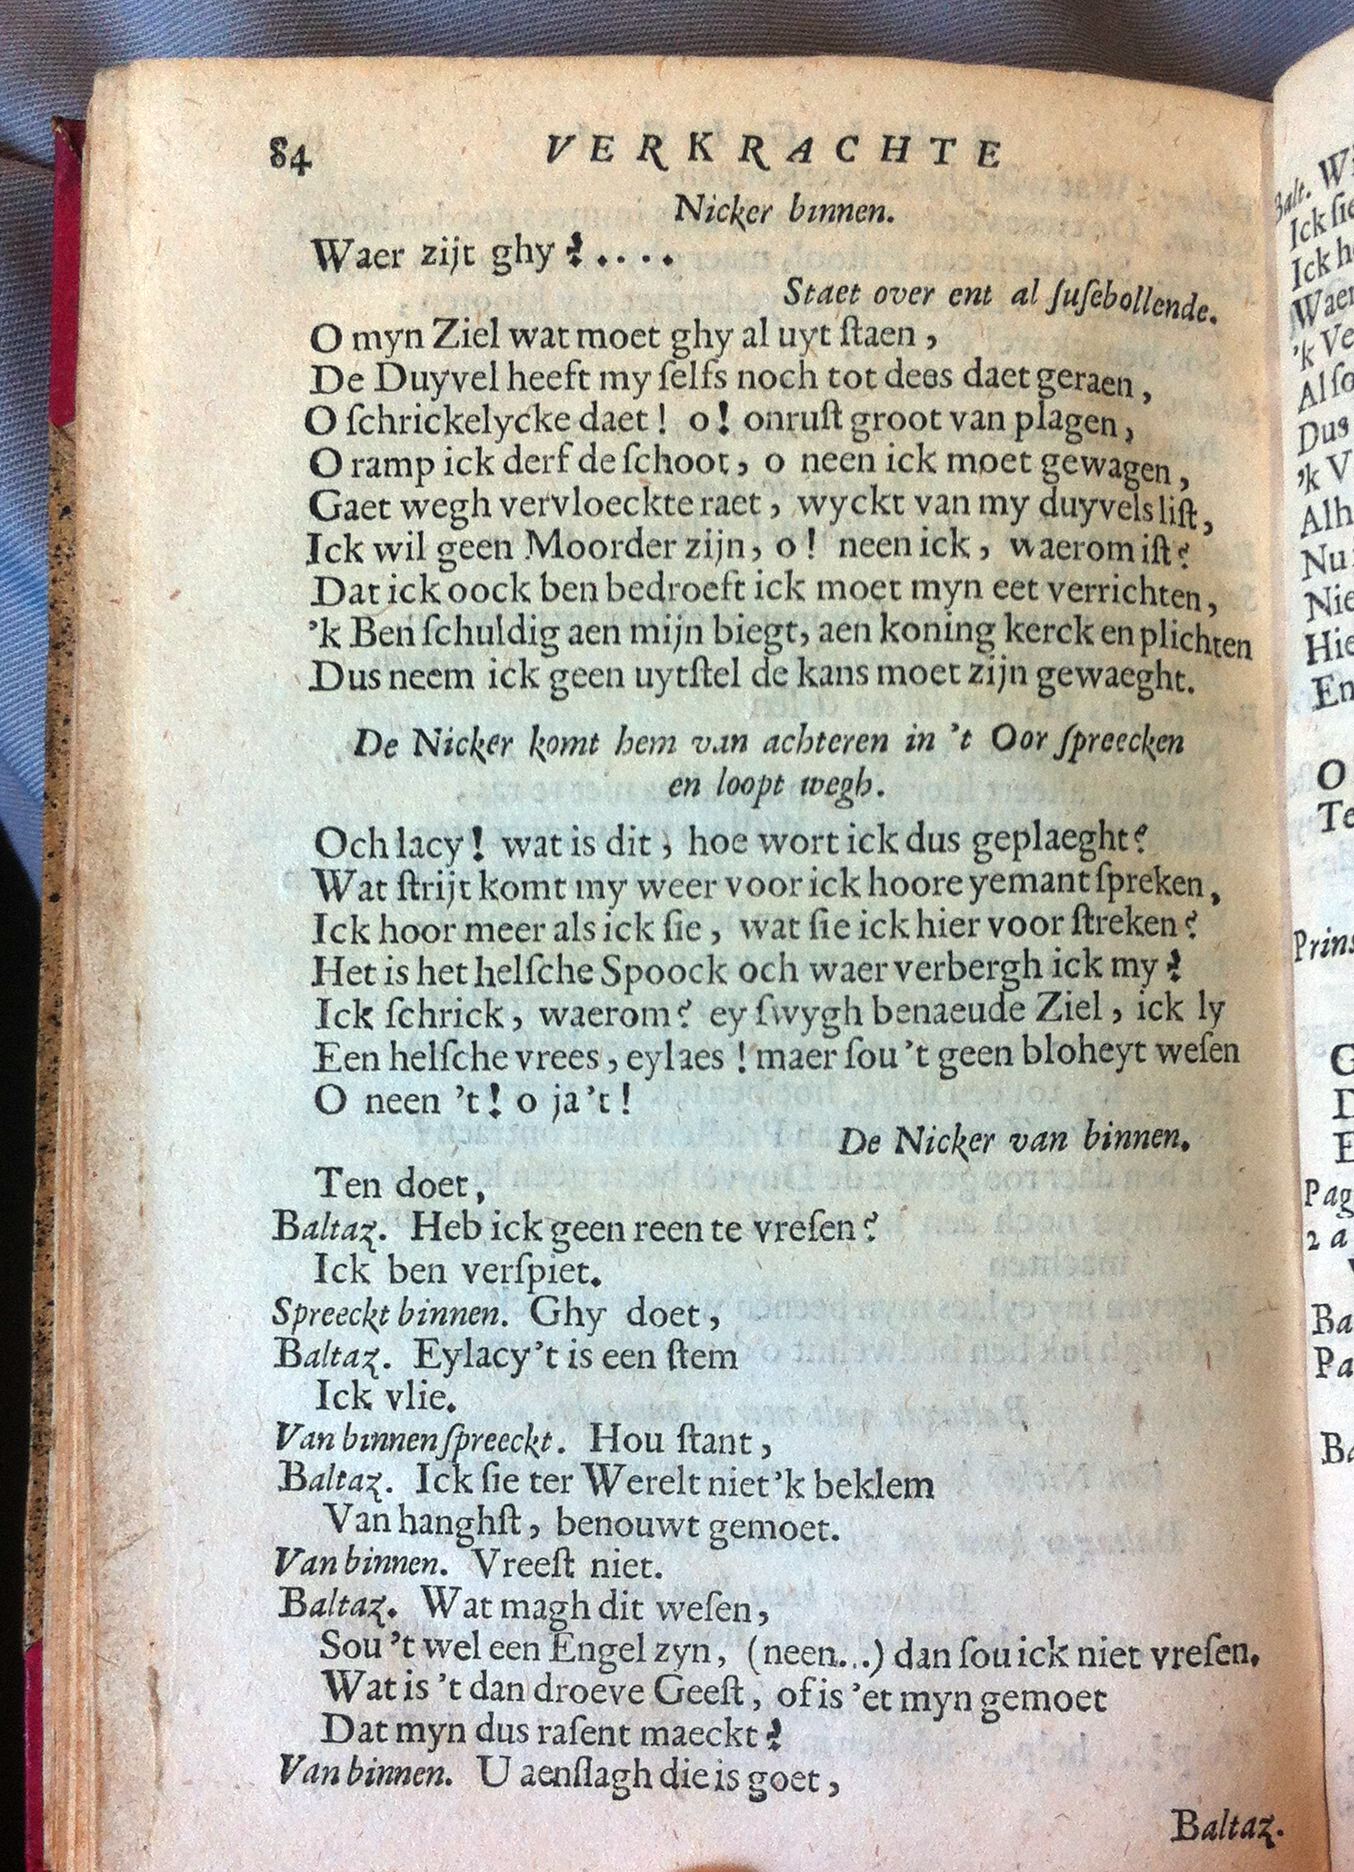 84 VERKRACHTE
Nicker binnen.
Waer zijt ghy?....
Staet over ent al ſuſebollende.
O myn Ziel wat moet ghy al uyt ſtaen,
De Duyvel heeft my ſelfs noch tot dees daet geraen,
O ſchrickelycke daet! o! onruſt groot van plagen,
O ramp ick derf de ſchoot, o neen ick moet gewagen,
Gaet wegh vervloeckte raet, wyckt van my duyvels liſt,
Ick wil geen Moorder zijn, o! neen ick, waerom iſt?
Dat ick oock ben bedroeft ick moet myn eet verrichten,
'k Ben ſchuldig aen mijn biegt, aen koning kerck en plichten
Dus neem ick geen uytſtel de kans moet zijn gewaeght.
De Nicker komt hem van achteren in 't Oor ſpreecken
en loopt wegh.
Och lacy! wat is dit, hoe wort ick dus geplaeght?
Wat ſtrijt komt my weer voor ick hoore yemant ſpreken,
Ick hoor meer als ick ſie, wat ſie ick hier voor ſtreken?
Het is het helſche Spoock och waer verbergh ick my?
Ick ſchrick, waerom? ey ſwygh benaeude Ziel, ick ly
Een helſche vrees, eylaes! maer ſou 't geen bloheyt weſen
O neen 't! o ja 't!
De Nicker van binnen.
Ten doet,
Baltaz. Heb ick geen reen te vreſen?
Ick ben verſpiet.
Spreeckt binnen. Ghy doet,
Baltaz. Eylacy 't is een ſtem
Ick vlie.
Van binnen ſpreeckt. Hou ſtant,
Baltaz. Ick ſie ter Werelt niet 'k beklem
Van hanghſt, benouwt gemoet.
Van binnen. Vreeſt niet.
Baltaz. Wat magh dit weſen,
Sou 't wel een Engel zyn, (neen...) dan ſou ick niet vreſen.
Wat is 't dan droeve Geeſt, of is 'et myn gemoet
Dat myn dus raſent maeckt?
Van binnen. U aenſlagh die is goet,
Baltaz.
Balt. 
Ick ſie
Ick h
Waer
'k Ve
Al ſo
Dus
'k V
Alh
Nu
Nie
Hie
En
O
Te
Prins
G
D
E
Pag
Ba
Pa
Ba